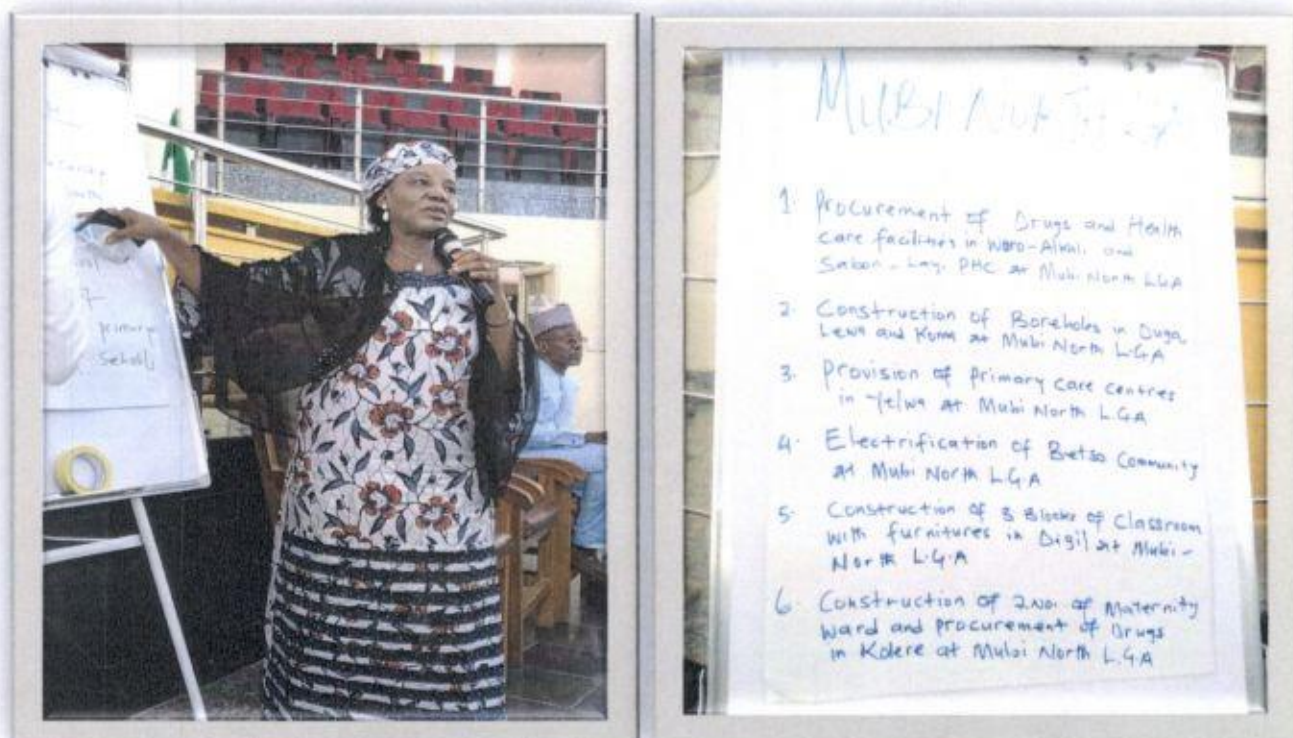 primary
School
MUBI
1. Procurement of Drugs and Health
care facilities in Wuro-Alkali and
Sabon-Layi PHC at Mubi North L.G.A
2. Construction of Boreholes in Duga,
Lewa and Kuma at Mubi North L.G.A
3. Provision of Primary care centres
in Yelwa at Mubi North L.G.A
4. Electrification of Betso Community
at Mubi North L.G.A
5. Construction of 3 Blocks of Classroom
with furnitures in Digil at Mubi-
North L.G.A
6. Construction of 2No. of Maternity
Ward and procurement of Drugs
in Kolere at Mubi North L.G.A